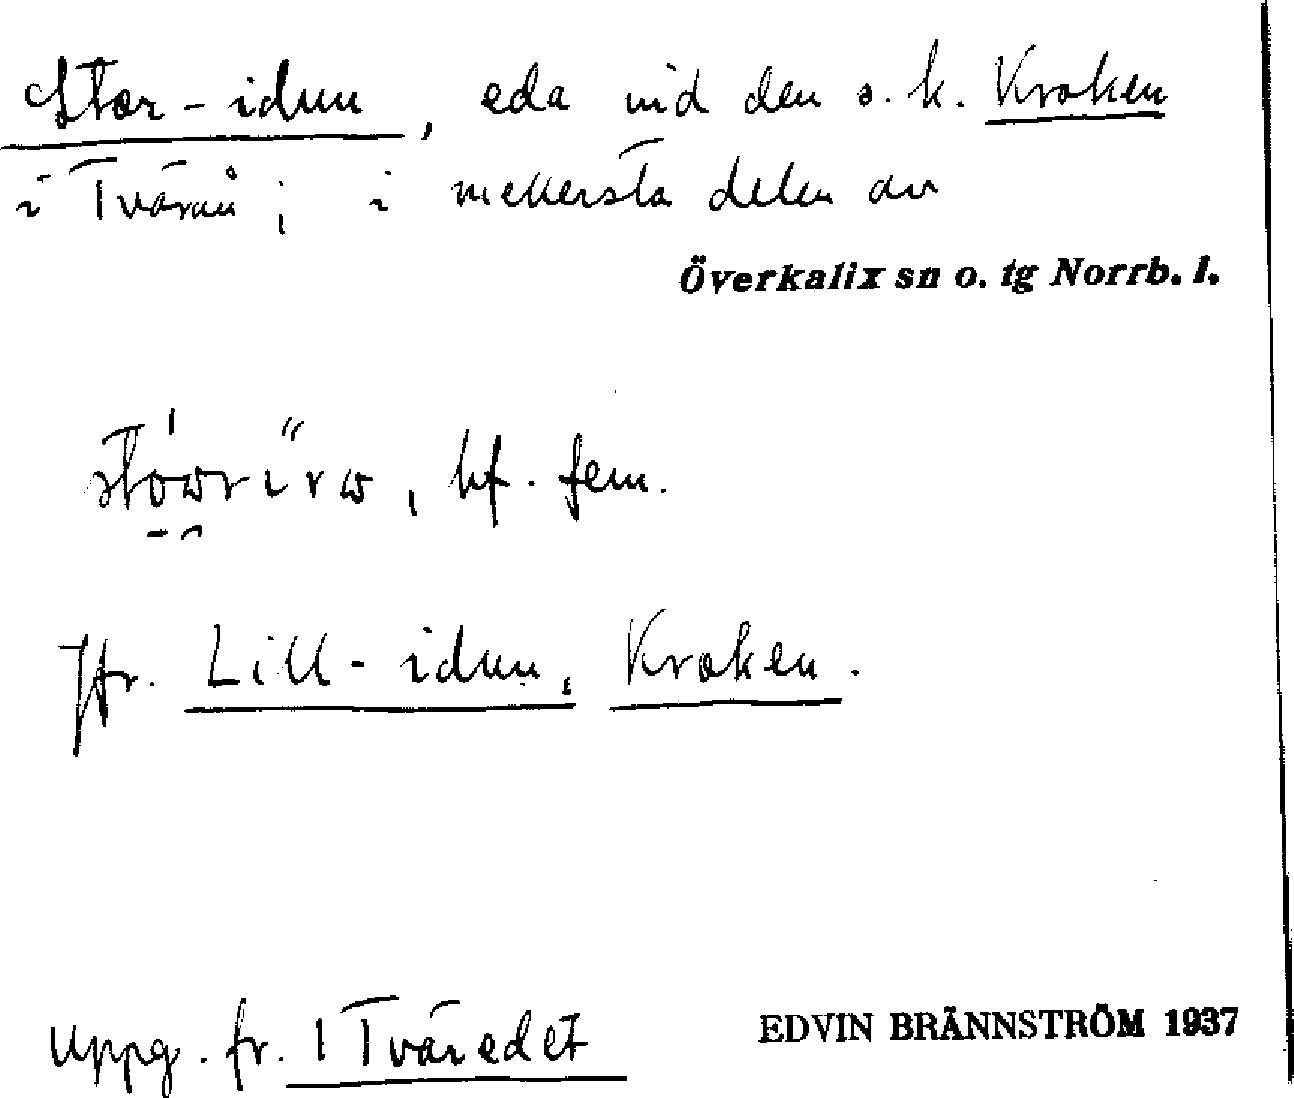 Stor-idun, eda vid den s.k. Kroken
i Tvärån; i mellersta delen av
Överkalix sn o. tg Norrb. l.
bf. fem.
Jfr. Lill-idun, Kroken.
Uppg. fr. 1 Tväredet
EDVIN BRÄNNSTRÖM 1937